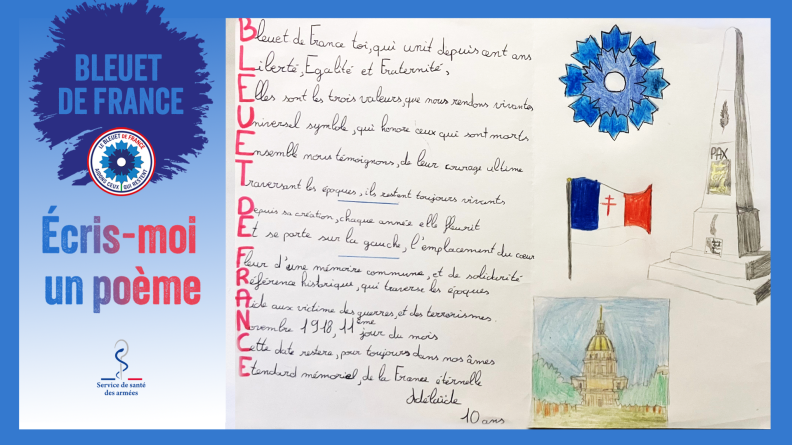 BLEUET
DE FRANCE
LE BLEUET DE FRANCE
AIDONS CEUX QUI RESTENT
Écris-moi
un poème
Service de santé
des armées
Bleuet de France toi, qui unit depuis cent ans
Liberté, Egalité et Fraternité,
Elles sont les trois valeurs, que nous rendons vivantes
Universel symbole, qui honore ceux qui sont morts
Ensemble nous témoignons, de leur courage ultime
Traversant les époques, ils restent toujours vivants
Depuis sa création, chaque année elle fleurit
Et se porte sur la gauche, l'emplacement du cœur
Fleur d'une mémoire commune, et de solidarité
Référence historique, qui traverse les époques
Aide aux victime des guerres, et des terrorismes.
Novembre 1918, 11ème jour du mois
Cette date restera, pour toujours dans nos âmes
Etendard mémoriel, de la France éternelle
Adélaïde
10 ans
PAX